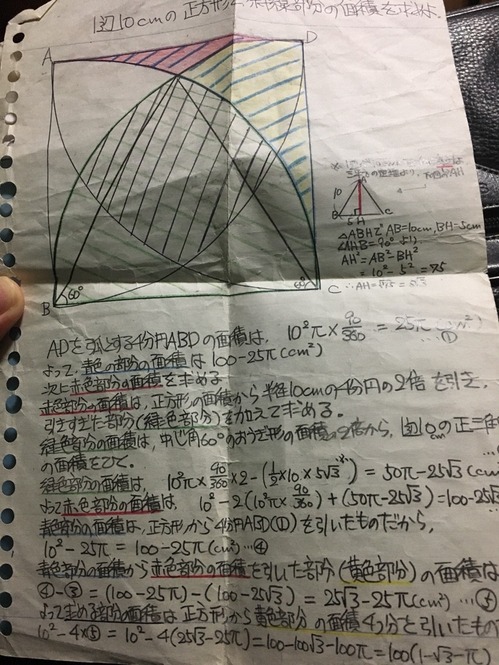 図10cmの正方形 部分の面積を求めよ。
A
D
B
C
60°
60°
10
B 5 H C
△ABHで AB=10cm, BH=5cm
∠AHB=90°より
AH²=AB²-BH²
=10²-5²=75
∴AH=√75=5√3
ADを弧とする4分円ABDの面積は、10²π×90/360=25π(cm²)
…①
よって、青色の部分の面積は100-25π(cm²)
次に赤色部分の面積を求める
赤色部分の面積は、正方形の面積から半径10cmの4分円の2倍を引き、
引きすぎた部分(緑色部分)を加えて求める。
緑色部分の面積は、中心角60°のおうぎ形の面積の2倍から、図10cmの正三角
の面積をひく。
緑色部分の面積は、10²π× /360×2-(1/2×10×5√3)=50π-25√3
よって赤色部分の面積は、10²-2(10²π×90/360)+(50π-25√3)=100-25√3
青色部分の面積は、正方形から4分円ABD(①)を引いたものだから、
10²-25π=100-25π(cm²)…④
青色部分の面積から赤色部分の面積を引いた部分(黄色部分)の面積は
④-③=(100-25π)-(100-25√3)=25√3-25π(cm²)…⑤
よって求める部分の面積は正方形から黄色部分の面積4つ分を引いたもの
10²-4×⑤=10²-4(25√3-25π)=100-100√3-100π=100(1-√3-π)